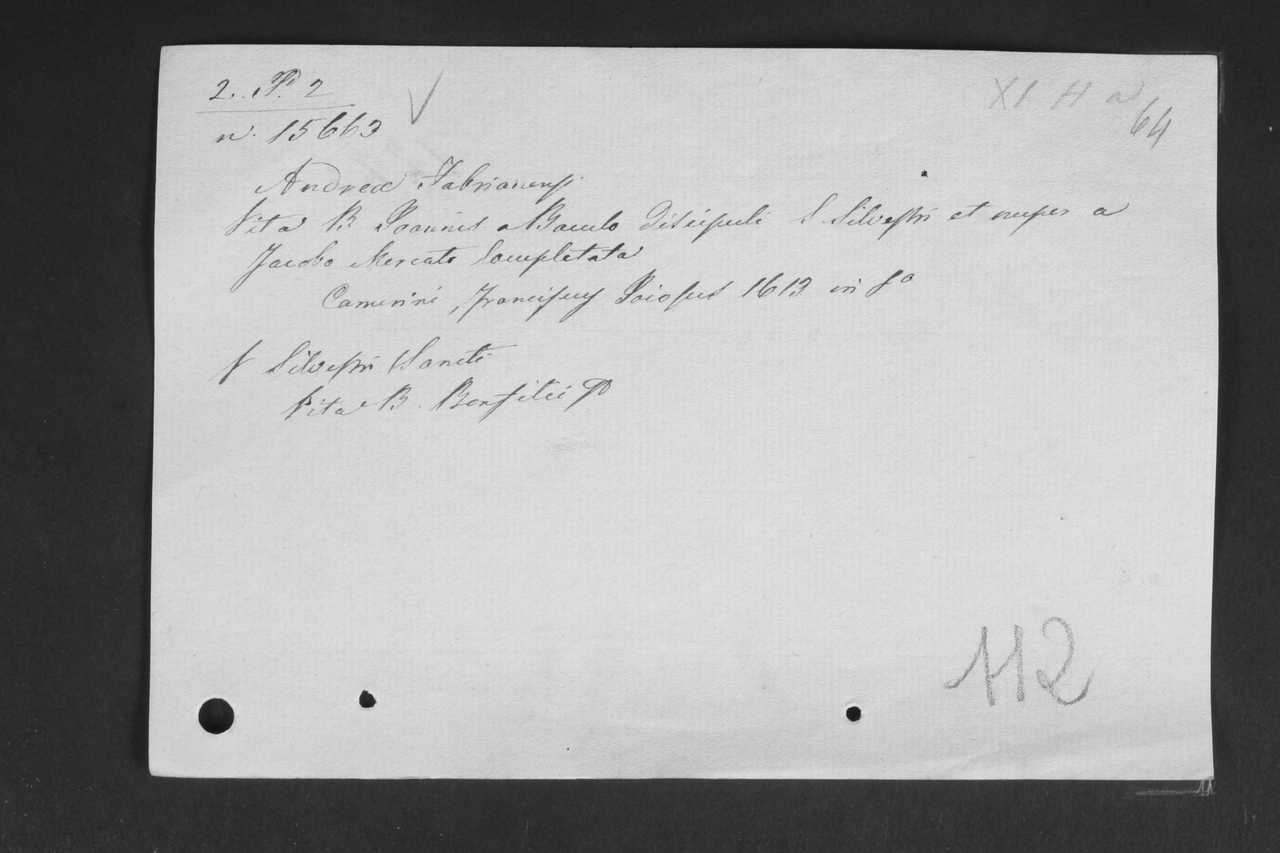 2. P. 2
n. 15663
XI H a
64
Andreæ Fabrianensis
Vita B. Joannis a Baculo Discipuli S. Silvestri et nuper a
Jacobo Mercati Completata
Camerini, Franciscus Joiosus 1613 in f°
f Silvestri Sancti
Vita B. Bonfilii
112
11